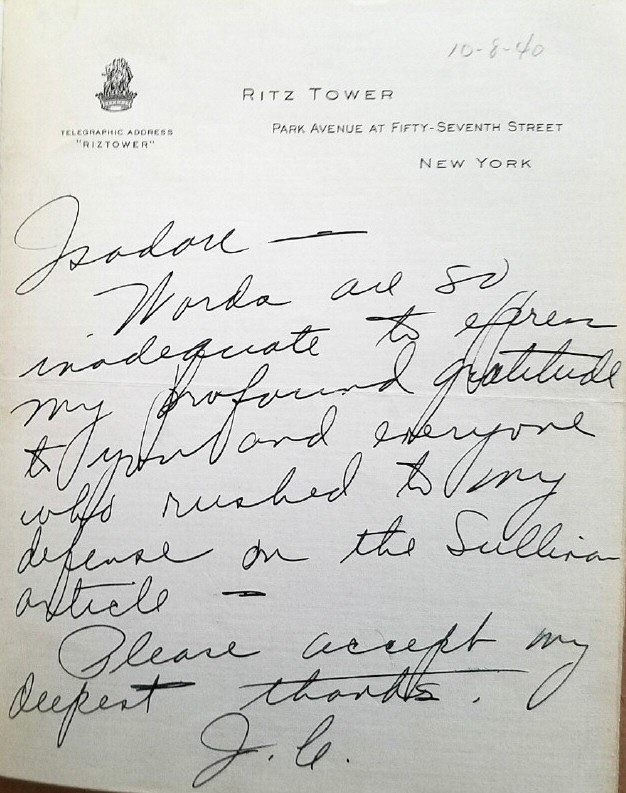 10-8-40
RITZ TOWER
PARK AVENUE AT FIFTY-SEVENTH STREET
NEW YORK
TELEGRAPHIC ADDRESS
"RIZTOWER"
Isadore —
Words are so
inadequate to express
my profound gratitude
to you and everyone
who rushed to my
defense on the Sullivan
article —
Please accept my
deepest thanks.
J. C.